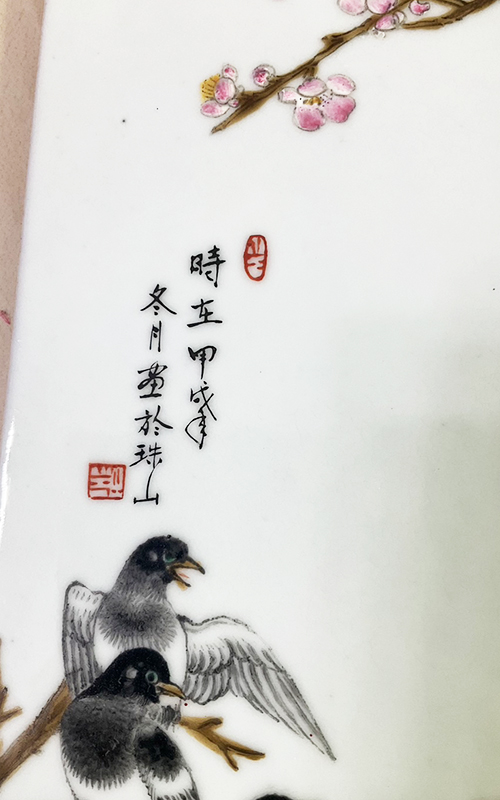 時在甲戌年
冬月画於珠山